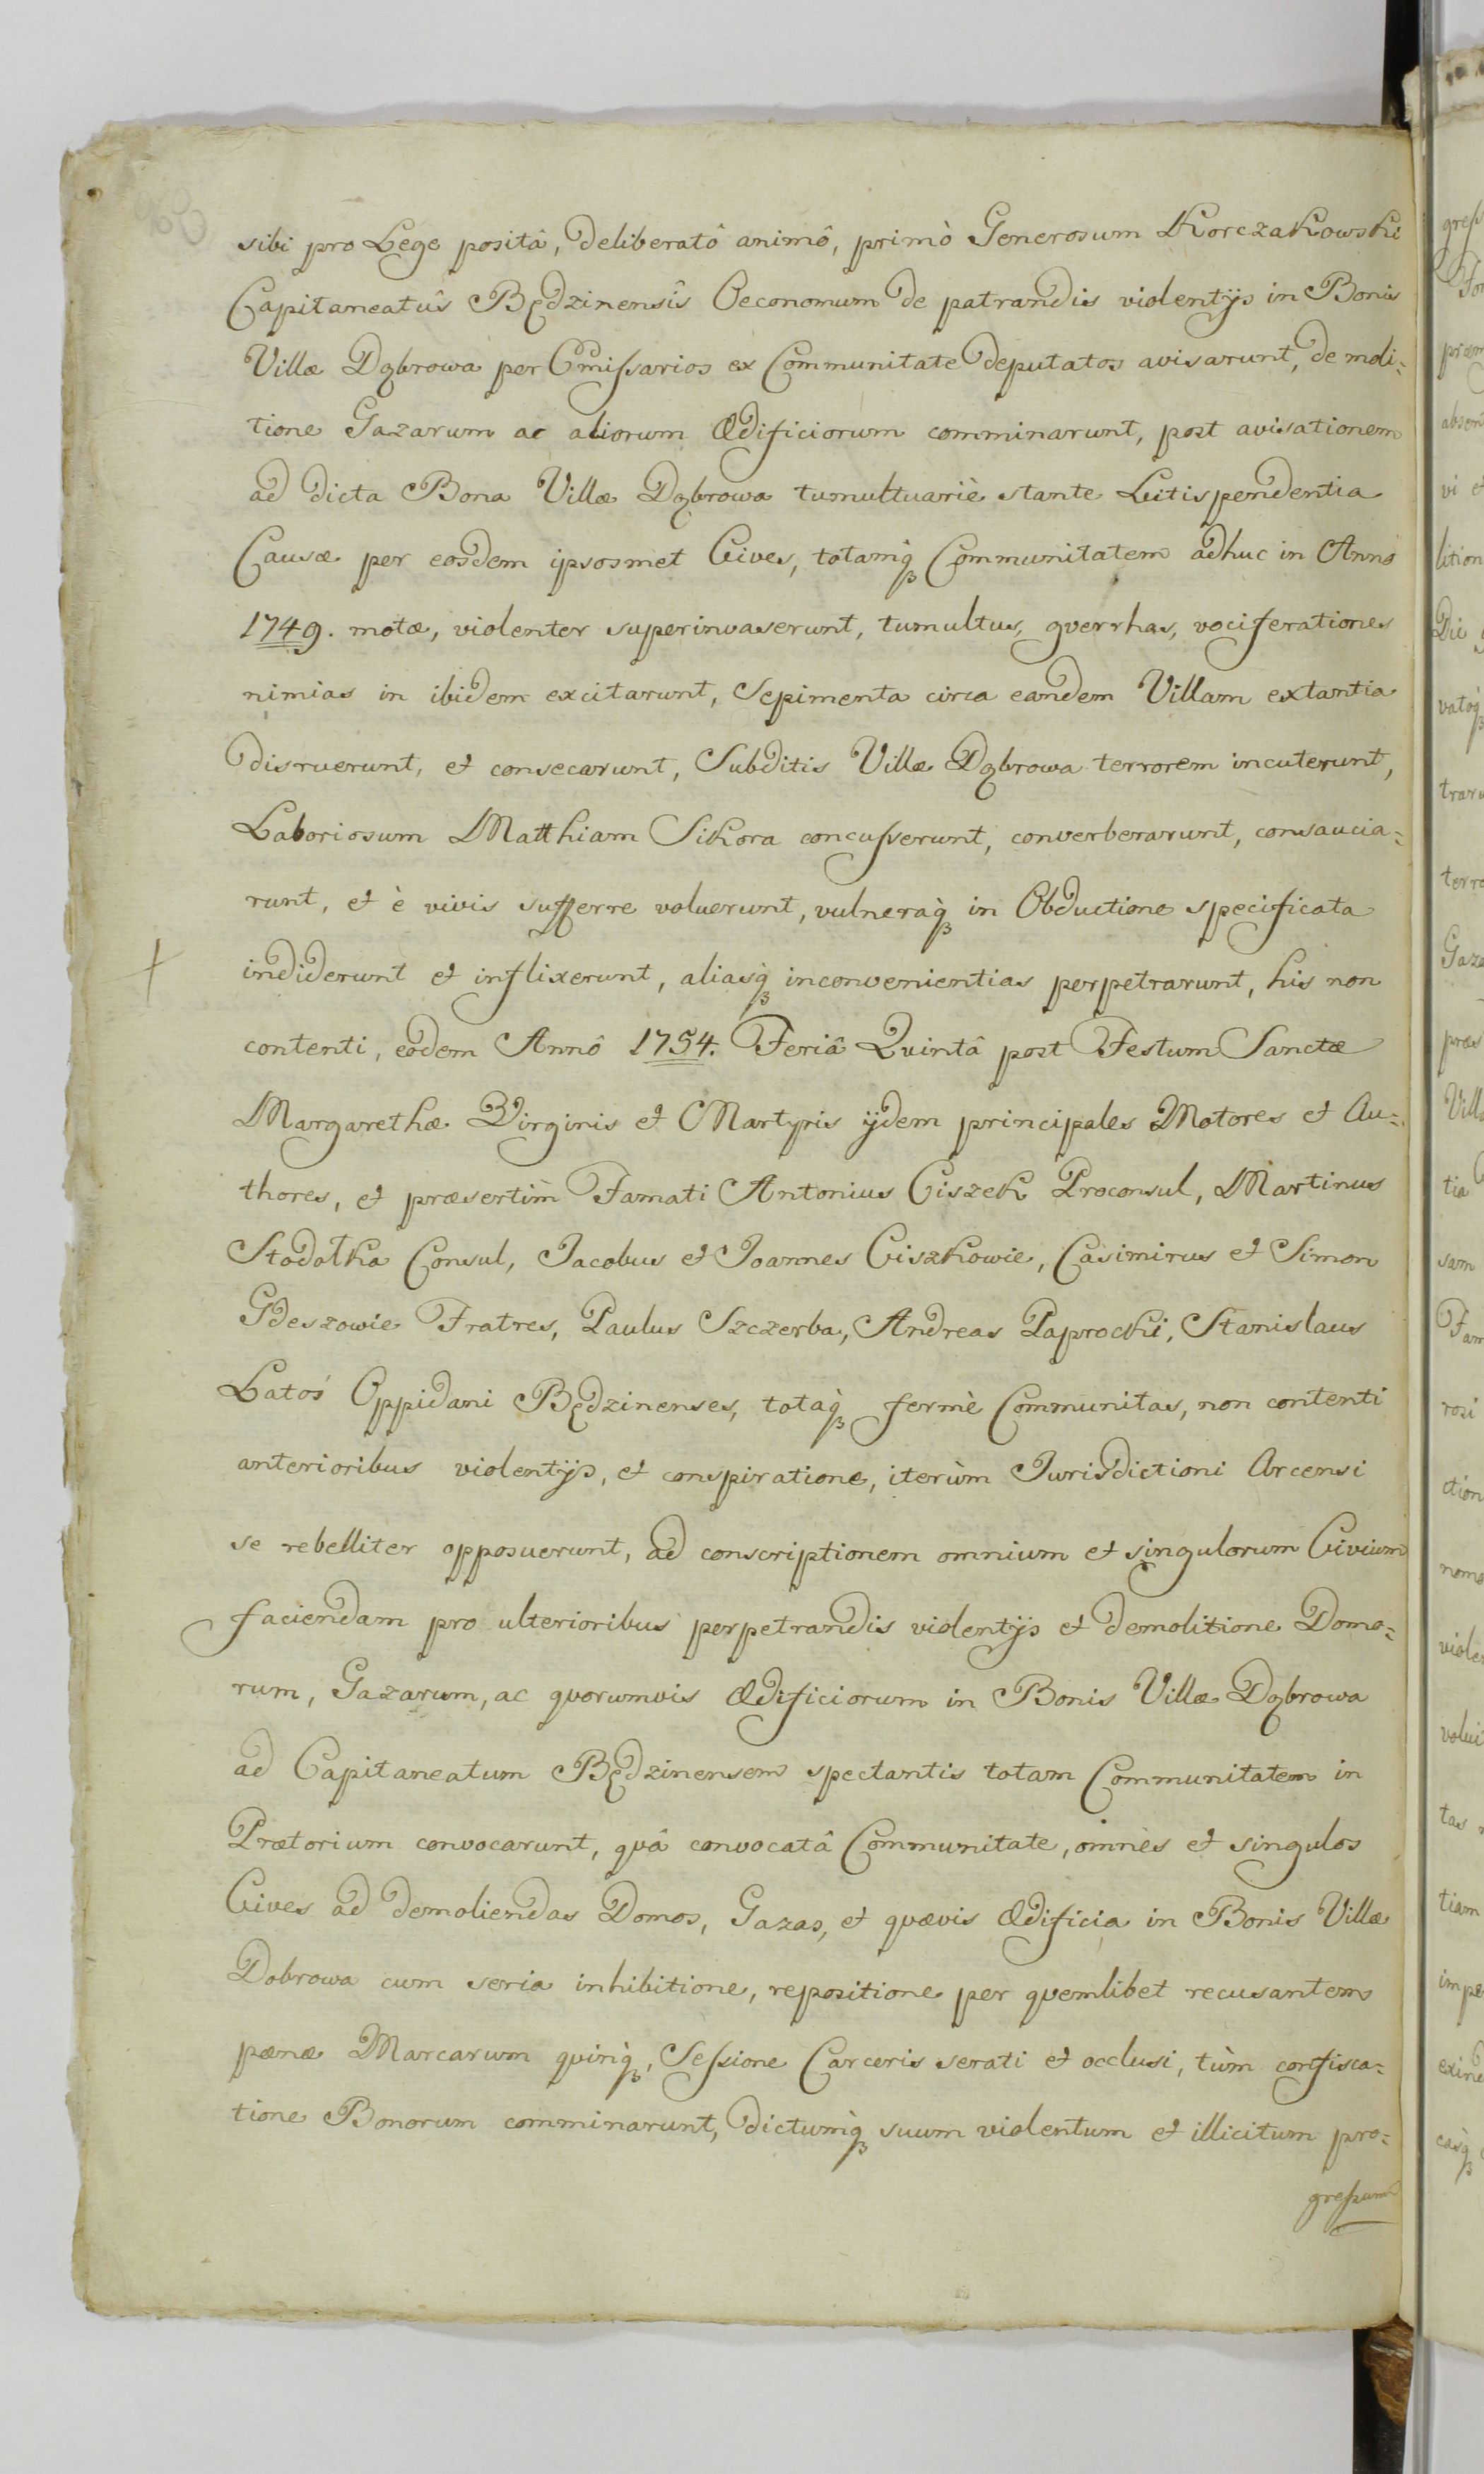 sibi pro Lege positâ, deliberatô animô, primò Generosum Korczakowski
Capitaneatûs Będzinensis Oeconomum de patrandis violentijs in Bonis
Villæ Dąbrowa per Emissarios ex Communitate deputatos avisarunt, de moli=
tione Gazarum ac aliorum Ædificiorum comminarunt, post avisationem
ad dicta Bona Villæ Dąbrowa tumultuariè stante Litispendentia
Causæ per eosdem ipsosmet Cives, totamq́ꝫ Communitatem adhuc in Annô
1749. motæ, violenter superinvaserunt, tumultus, gverrhas, vociferationes
nimias in ibidem excitarunt, Sepimenta circa eandem Villam extantia
disruerunt, et consecarunt, Subditis Villæ Dąbrowa terrorem incuterunt,
Laboriosum Matthiam Sikora concusserunt, converberarunt, consaucia=
runt, et è vivis sufferre voluerunt, vulneraq́ꝫ in Obductione specificata
indiderunt et inflixerunt, aliasq́ꝫ inconvenientias perpetrarunt, his non
contenti, eodem Annô 1754. Feriâ Qvintâ post Festum Sanctæ
Margarethæ Virginis et Martyris ijdem principales Motores et Au=
thores, et præsertìm Famati Antonius Ciszek Proconsul, Martinus
Stodołka Consul, Jacobus et Joannes Ciszkowie, Casimirus et Simon
Gdeszowie Fratres, Paulus Szczerba, Andreas Paprocki, Stanislaus
Latoś Oppidani Będzinenses, totaq́ꝫ fermè Communitas, non contenti
anterioribus violentijs, et conspiratione, iterùm Jurisdictioni Arcensi
se rebelliter opposuerunt, ad conscriptionem omnium et singulorum Civium
faciendam pro ulterioribus perpetrandis violentijs et demolitione Domo=
rum, Gazarum, ac qvorumvis Ædificiorum in Bonis Villæ Dąbrowa
ad Capitaneatum Będzinensem spectantis totam Communitatem in
Prætorium convocarunt, qvâ convocatâ Communitate, omnès et singulos
Cives ad demoliendas Domos, Gazas, et qvævis Ædificia in Bonis Villæ
Dobrowa cum seria inhibitione, repositione per qvemlibet recusantem
pænæ Marcarum qvinq́ꝫ, Sessione Carceris serati et occlusi, tùm confisca=
tione Bonorum comminarunt, dictumq́ꝫ suum violentum et illicitum pro=
gressum